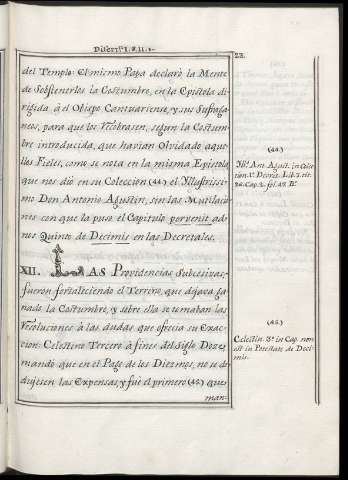 Disert.ⁿ I. §. II.
23.
del Templo: El mismo Papa declarò la Mente
de Sobstenerlos la Costumbre, en la Epistola di-
rigida à el Obispo Cantuariense, y sus Sufraga-
neos, para que los Vecobrasen, segun la Costum-
bre introducida, que havian Olvidado aque-
llos Fieles, como se nota en la misma Epistola,
que nos diò en su Coleccion (44.) el Yllustrissi-
mo Don Antonio Agustin, sin las Mutilacio-
nes con que la puso el Capitulo pervenit ad
nos Quinto de Decimis en las Decretales.
XII. LAS Providencias Subcesivas,
fueron fortaliciendo el Terreno, que dejava ga-
nado la Costumbre, y sobre ella se tomaban las
Vesoluciones à las dudas que ofrecia su Exac-
cion: Celestino Tercero à fines del Siglo Doze,
mandò que en el Pago de los Diezmos, no se de-
dujesen las Expensas, y fuè el primero (45.) que
man-
(44.)
Ant. Agust. in Colec-
tion. 1.ª Decret. Lib. 3. tit.
26. Cap. 2.
(45.)
Celestin. 3.º in Cap. non
est in Potestate de Deci-
mis.